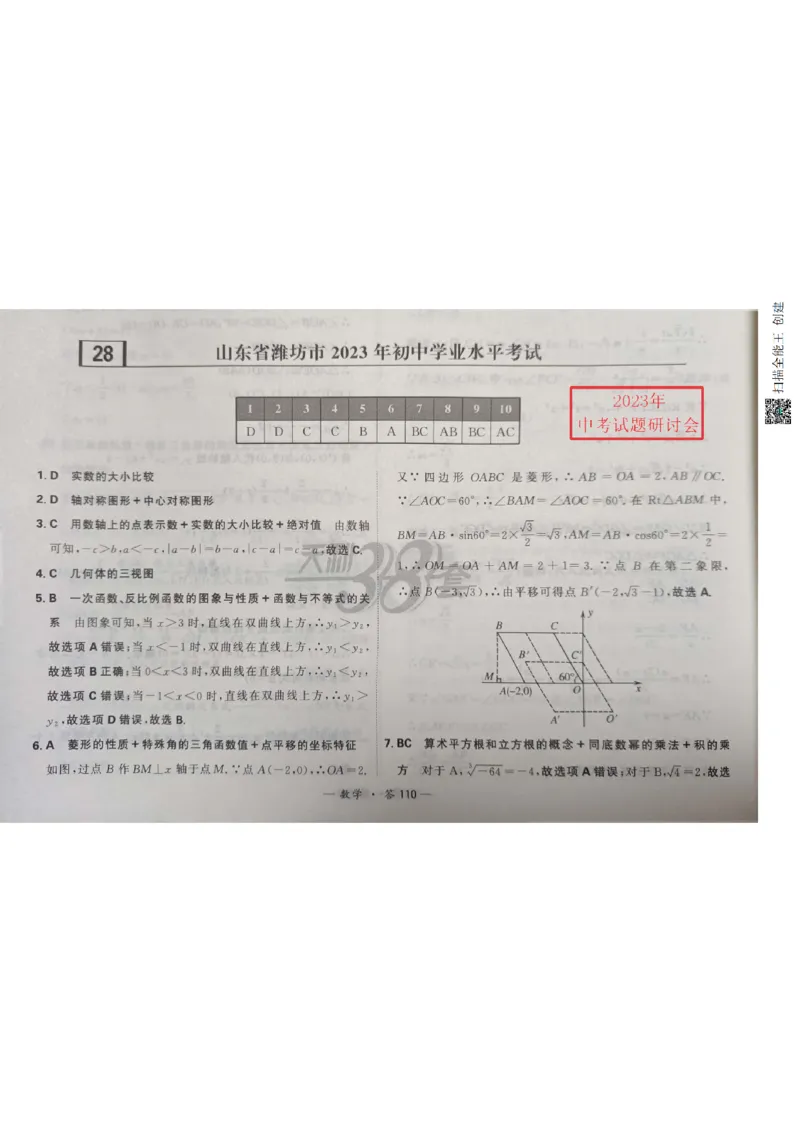 28
山东省潍坊市 2023 年初中学业水平考试
1 2 3 4 5 6 7 8 9 10
D D C C B A BC AB BC AC
2023年
中考试题研讨会
1. D 实数的大小比较
2. D 轴对称图形+中心对称图形
3. C 用数轴上的点表示数+实数的大小比较+绝对值 由数轴
可知,-c>b,a<-c,|a-b|=b-a,|c-a|=c-a,故选 C.
4. C 几何体的三视图
5. B 一次函数、反比例函数的图象与性质+函数与不等式的关
系 由图象可知,当 x>3 时,直线在双曲线上方,∴y₁>y₂,
故选项 A 错误;当 x<-1 时,双曲线在直线上方,∴y₁<y₂,
故选项 B 正确;当 0<x<3 时,双曲线在直线上方,∴y₁<y₂,
故选项 C 错误;当-1<x<0 时,直线在双曲线上方,∴y₁>
y₂,故选项 D 错误.故选 B.
6. A 菱形的性质+特殊角的三角函数值+点平移的坐标特征
如图,过点 B 作 BM⊥x 轴于点 M.∵点 A(-2,0),∴OA=2.
又∵四边形 OABC 是菱形,∴AB=OA=2,AB∥OC.
∵∠AOC=60°,∴∠BAM=∠AOC=60°.在 Rt△ABM 中,
BM=AB·sin60°=2×√3/2=√3,AM=AB·cos60°=2×1/2=
1,∴OM=OA+AM=2+1=3.∵点 B 在第二象限,
∴点 B(-3,√3),∴由平移可得点 B′(-2,√3-1),故选 A.
y
B C
B′ C′
M 60°
A(-2,0) O x
A′ O′
7. BC 算术平方根和立方根的概念+同底数幂的乘法+积的乘
方 对于 A,∛-64=-4,故选项 A 错误;对于 B,√4=2,故选
天利38套
— 数学·答 110 —
扫描全能王 创建